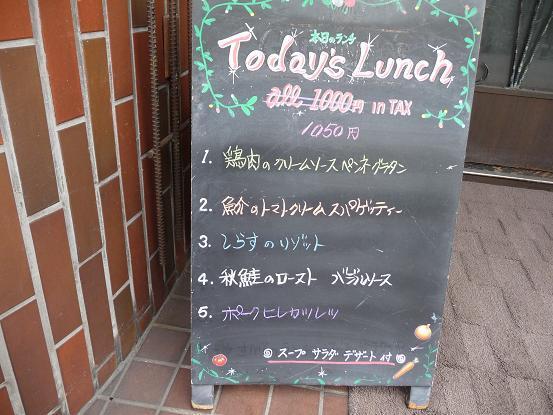 本日のランチ
Today's Lunch
all 1000円 in TAX
1050円
1. 鶏肉のクリームソースペンネグラタン
2. 魚介のトマトクリームスパゲッティー
3. しらすのリゾット
4. 秋鮭のロースト バジルソース
5. ポークヒレカツレツ
スープ サラダ デザート付